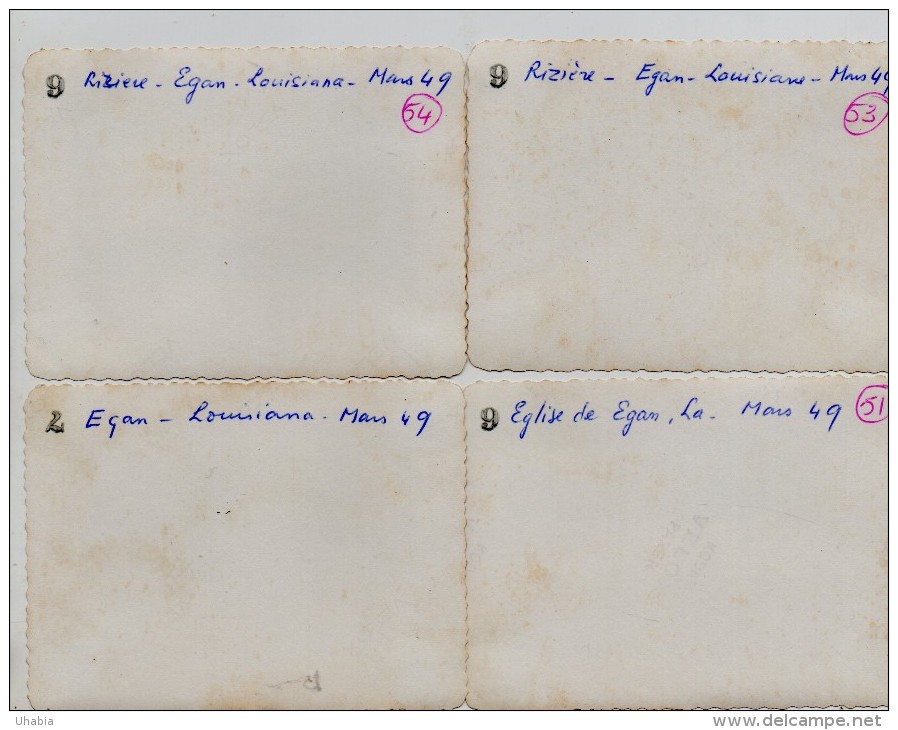 9 Rizière - Egan - Louisiana - Mars 49
54
9 Rizière - Egan - Louisiane - Mars 49
53
2 Egan - Louisiana - Mars 49
9 Eglise de Egan, La - Mars 49
51
Uhabia
www.delcampe.net